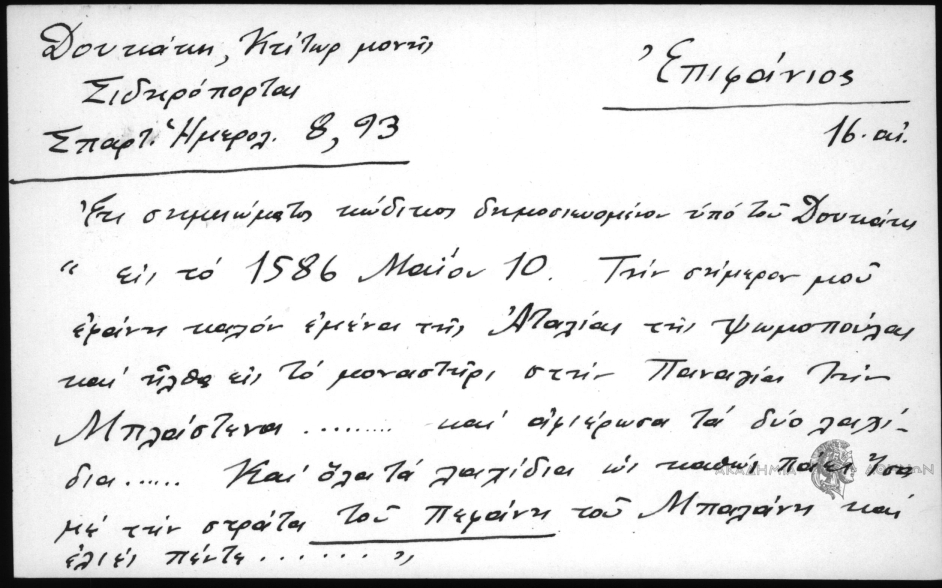 Δουκάκη, Κτίτωρ μονῆς
Σιδηρόπορτας
Σπαρτ. Ἡμερολ. 8, 93
Ἐπιφάνιος
16. αἰ.
Ἐκ σημειώματος κώδικος δημοσιευομένου ὑπό τοῦ Δουκάκη
“ εἰς τό 1586 Μαΐου 10. Τήν σήμερον μοῦ
ἐφάνη καλόν ἐμένα τῆς Ἀταλίας τῆς Ψωμοπούλας
καί ἦλθα εἰς τό μοναστῆρι στήν Παναγία τήν
Μπλάστενα ......... καί ἀφιέρωσα τά δύο λακκί-
δια...... Καί ὅλα τά λακκίδια ὡς καθώς πάει
μέ τήν στράτα τοῦ Πεφάνη τοῦ Μπαλάνη καί
ἐλιές πέντε ........ ”
ΑΚΑΔΗΜΙΑ ΑΘΗΝΩΝ